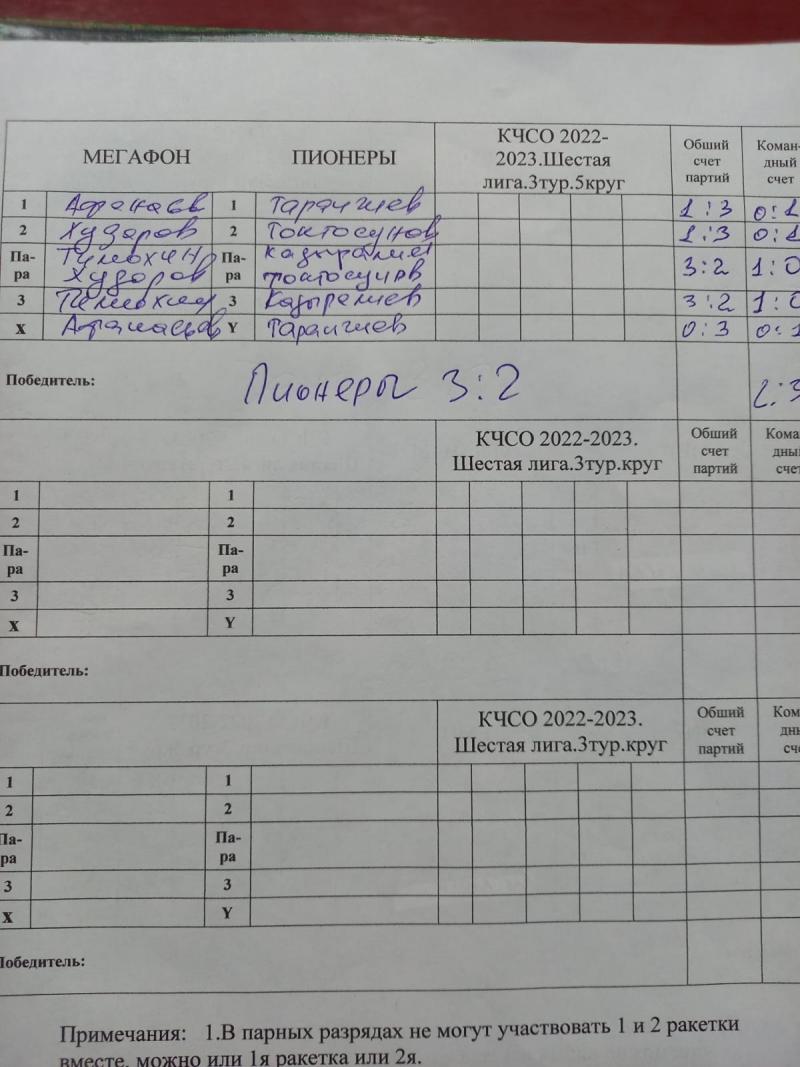 МЕГАФОН ПИОНЕРЫ КЧСО 2022-2023.Шестая лига.3тур.5круг Обший счет партий Коман-дный счет
1 Афанаев 1 Таранчиев 1:3 0:1
2 Худоров 2 Токтосунов 1:3 0:1
Па-ра Худоров Па-ра токтосунов 3:2 1:0
3 3 Кадыралиев 3:2 1:0
X Y Таранчиев 0:3 0:1
Победитель: Пионеры 3:2 2:3
КЧСО 2022-2023. Шестая лига.3тур.круг Обший счет партий
1 1
2 2
Па-ра Па-ра
3 3
X Y
Победитель:
КЧСО 2022-2023. Шестая лига.3тур.круг Обший счет партий
1 1
2 2
Па-ра Па-ра
3 3
X Y
Победитель:
Примечания: 1.В парных разрядах не могут участвовать 1 и 2 ракетки
вместе, можно или 1я ракетка или 2я.